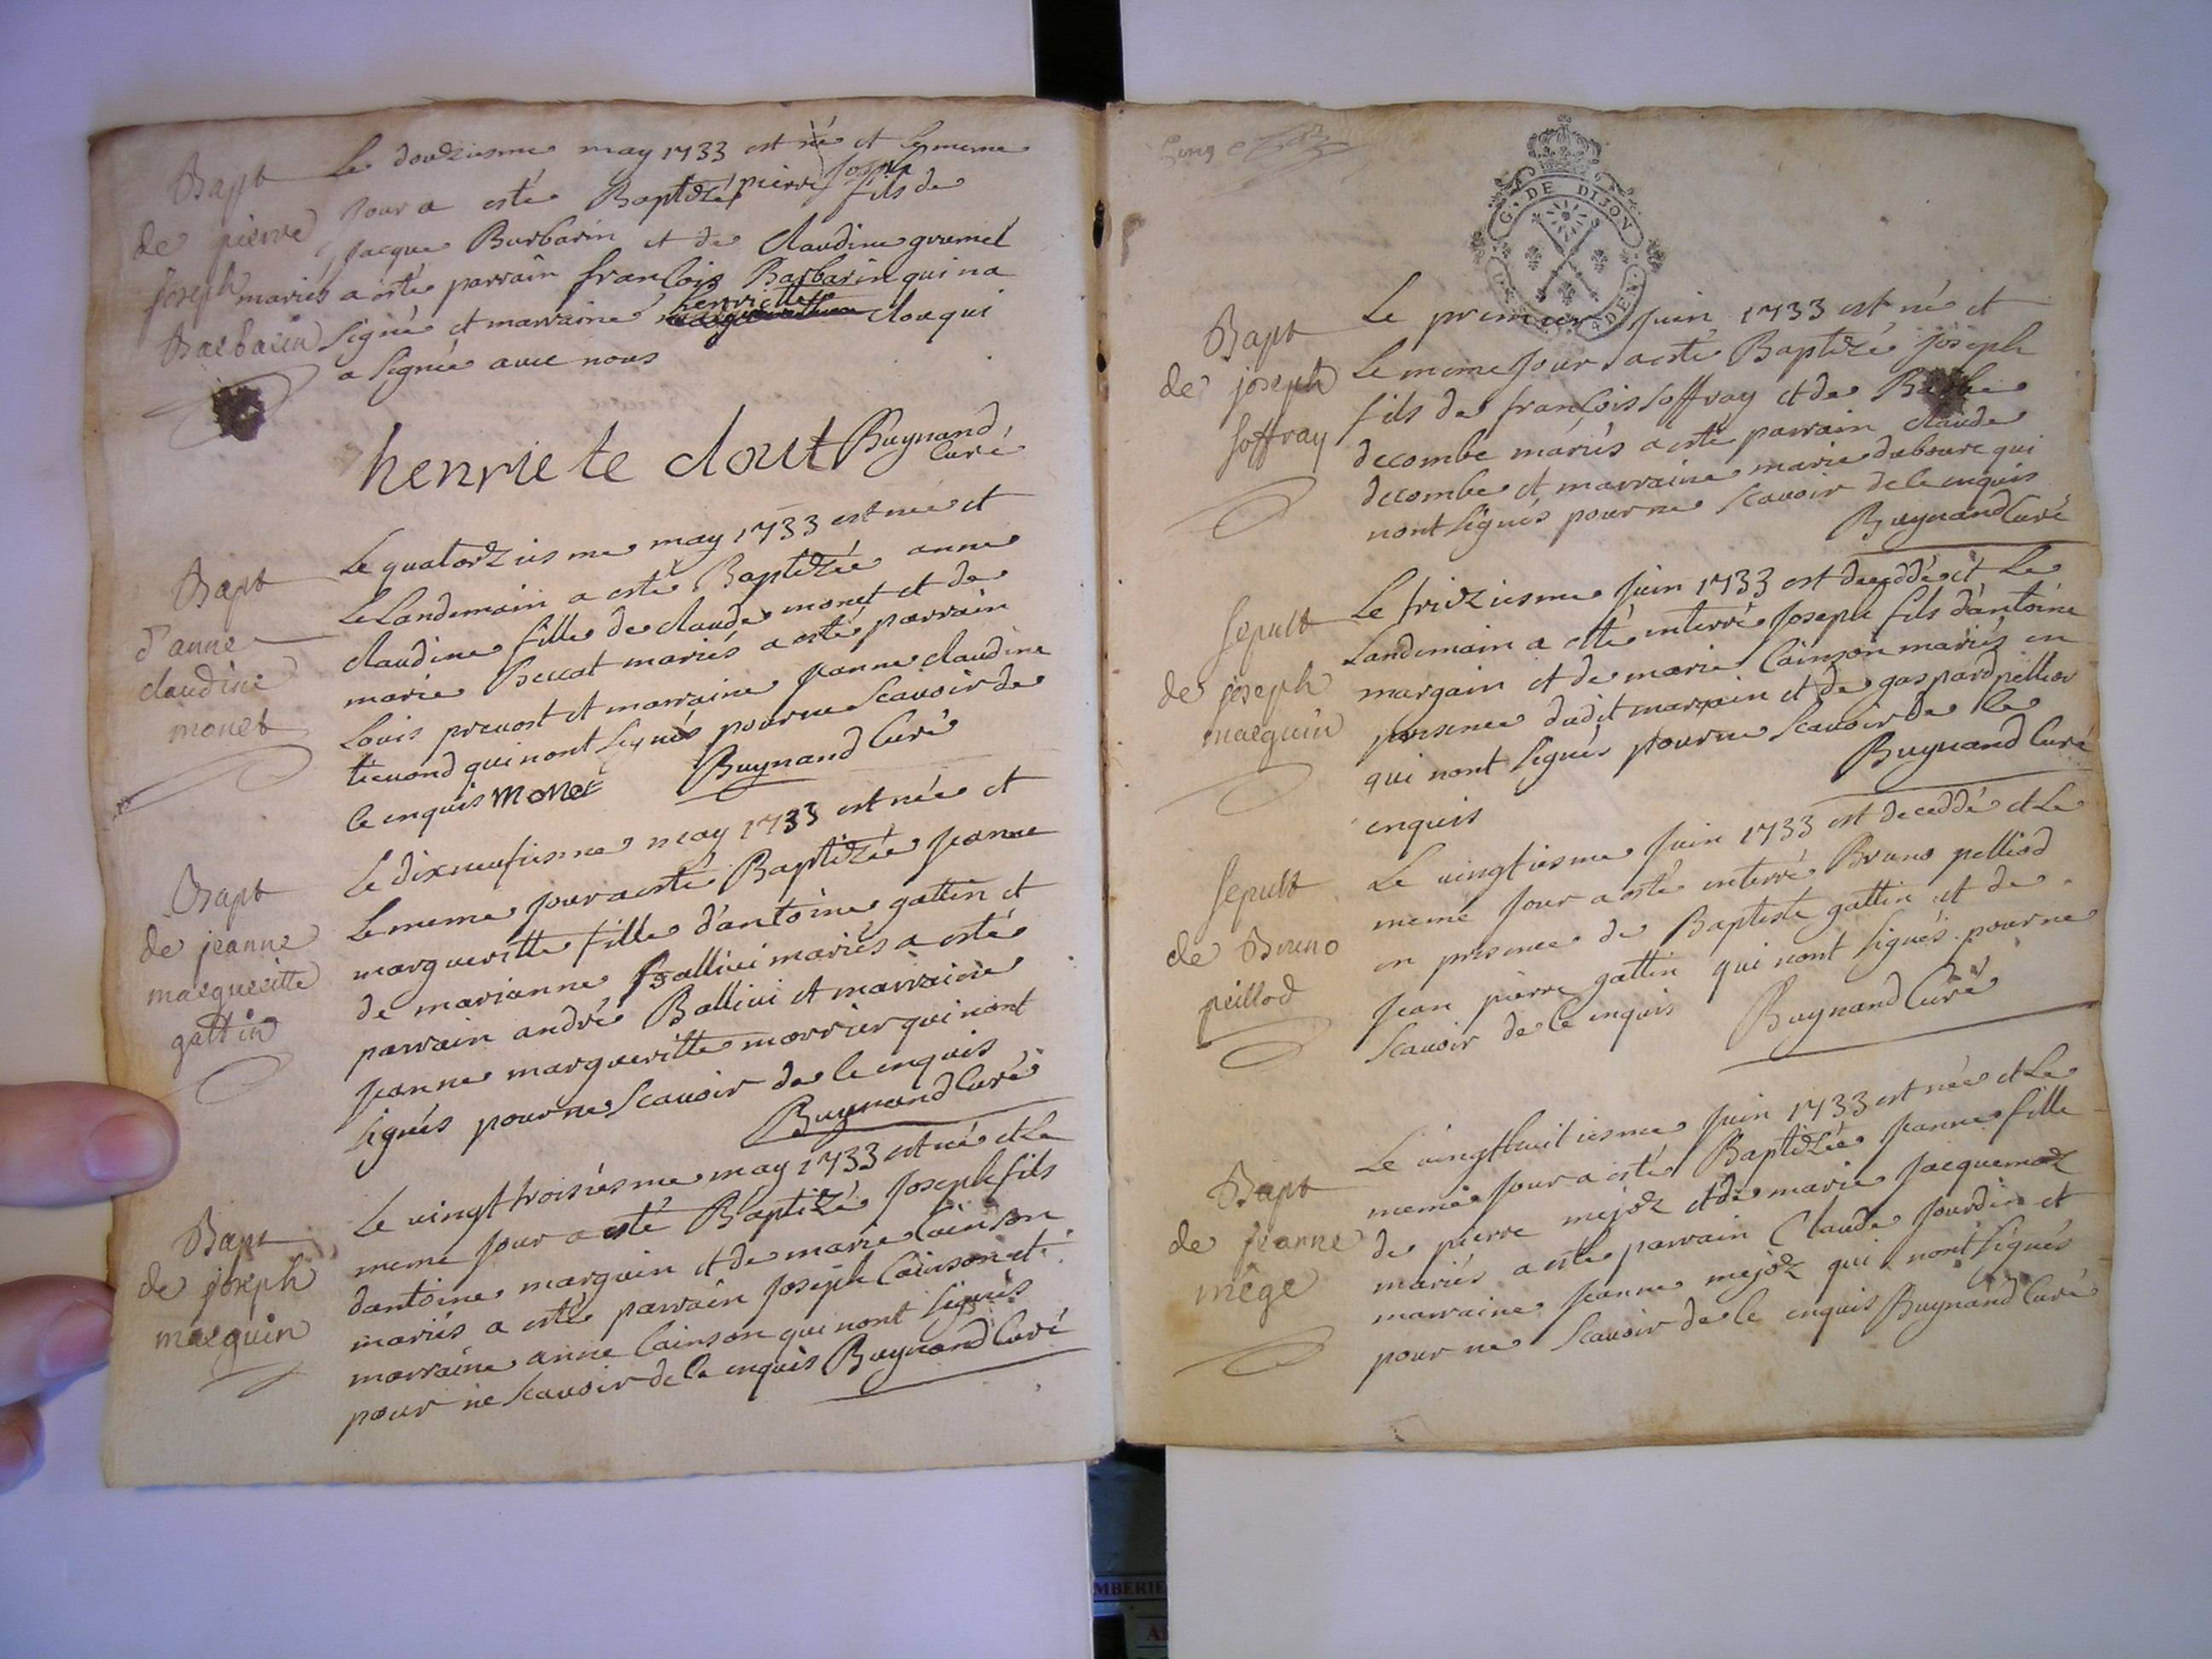 Bapt
de pierre
joseph
Barbarin
Le douziesme may 1733 est né et le meme
Jour a esté Baptizé pierre Joseph fils de
Jacque Barbarin et de claudine gromel
mariés a esté parrain francois Barbarin qui na
signé et marraine henriette clou qui
a signée avec nous
henriete clout Buynand
Curé
Bapt
d'anne
claudine
monet
Le quatorziesme may 1733 est née et
Le Landemain a esté Baptizée anne
claudine fille de claude monet et de
marie Beccat mariés a esté parrain
Louis prevost et marraine jeanne claudine
tievond qui nont signés pour ne scavoir de
ce enquis monet Buynand Curé
Bapt
de jeanne
marguerite
gattin
Le dixneufiesme may 1733 est née et
Le meme jour a esté Baptizée jeanne
margueritte fille d'antoine gattin et
de marianne Ballivi mariés a esté
parrain andré Ballivi et marraine
jeanne margueritte morrier qui nont
signés pour ne scavoir de ce enquis
Buynand Curé
Bapt
de joseph
marguin
Le vingt troisiesme may 1733 est né et Le
meme jour a esté Baptizé Joseph fils
dantoine marguin et de marie Cainson
mariés a esté parrain Joseph Cainson et
marraine anne Cainson qui nont signés
pour ne scavoir de ce enquis Buynand Curé
Cinq
G. DE DIJON
Bapt
de joseph
soffray
Le premier Juin 1733 est né et
Le meme jour a esté Baptizé joseph
fils de francois soffray et de Barbe
decombe mariés a esté parrain claude
decombe et marraine marie dubourc qui
nont signés pour ne scavoir de ce enquis
Buynand Curé
Sepult
de joseph
marguin
Le treiziesme Juin 1733 est deceddé et Le
Landemain a esté interré Joseph fils d'antoine
margain et de marie Cainson mariés en
presence dudit margain et de gaspard pelliod
qui nont signés pour ne scavoir de ce
enquis Buynand Curé
Sepult
de Bruno
peillod
Le vingtiesme Juin 1733 est deceddé et Le
meme jour a esté interré Bruno pelliod
en presence de Baptiste gattin et de
Jean pierre gattin qui nont signés pour ne
scavoir de ce enquis Buynand Curé
Bapt
de jeanne
mêge
Le vingthuitiesme Juin 1733 est née et Le
meme jour a esté Baptizée jeanne fille
de pierre mejoz et de marie jacquemoz
mariés a esté parrain Claude jourdin et
marraine jeanne mejoz qui nont signés
pour ne scavoir de ce enquis Buynand Curé